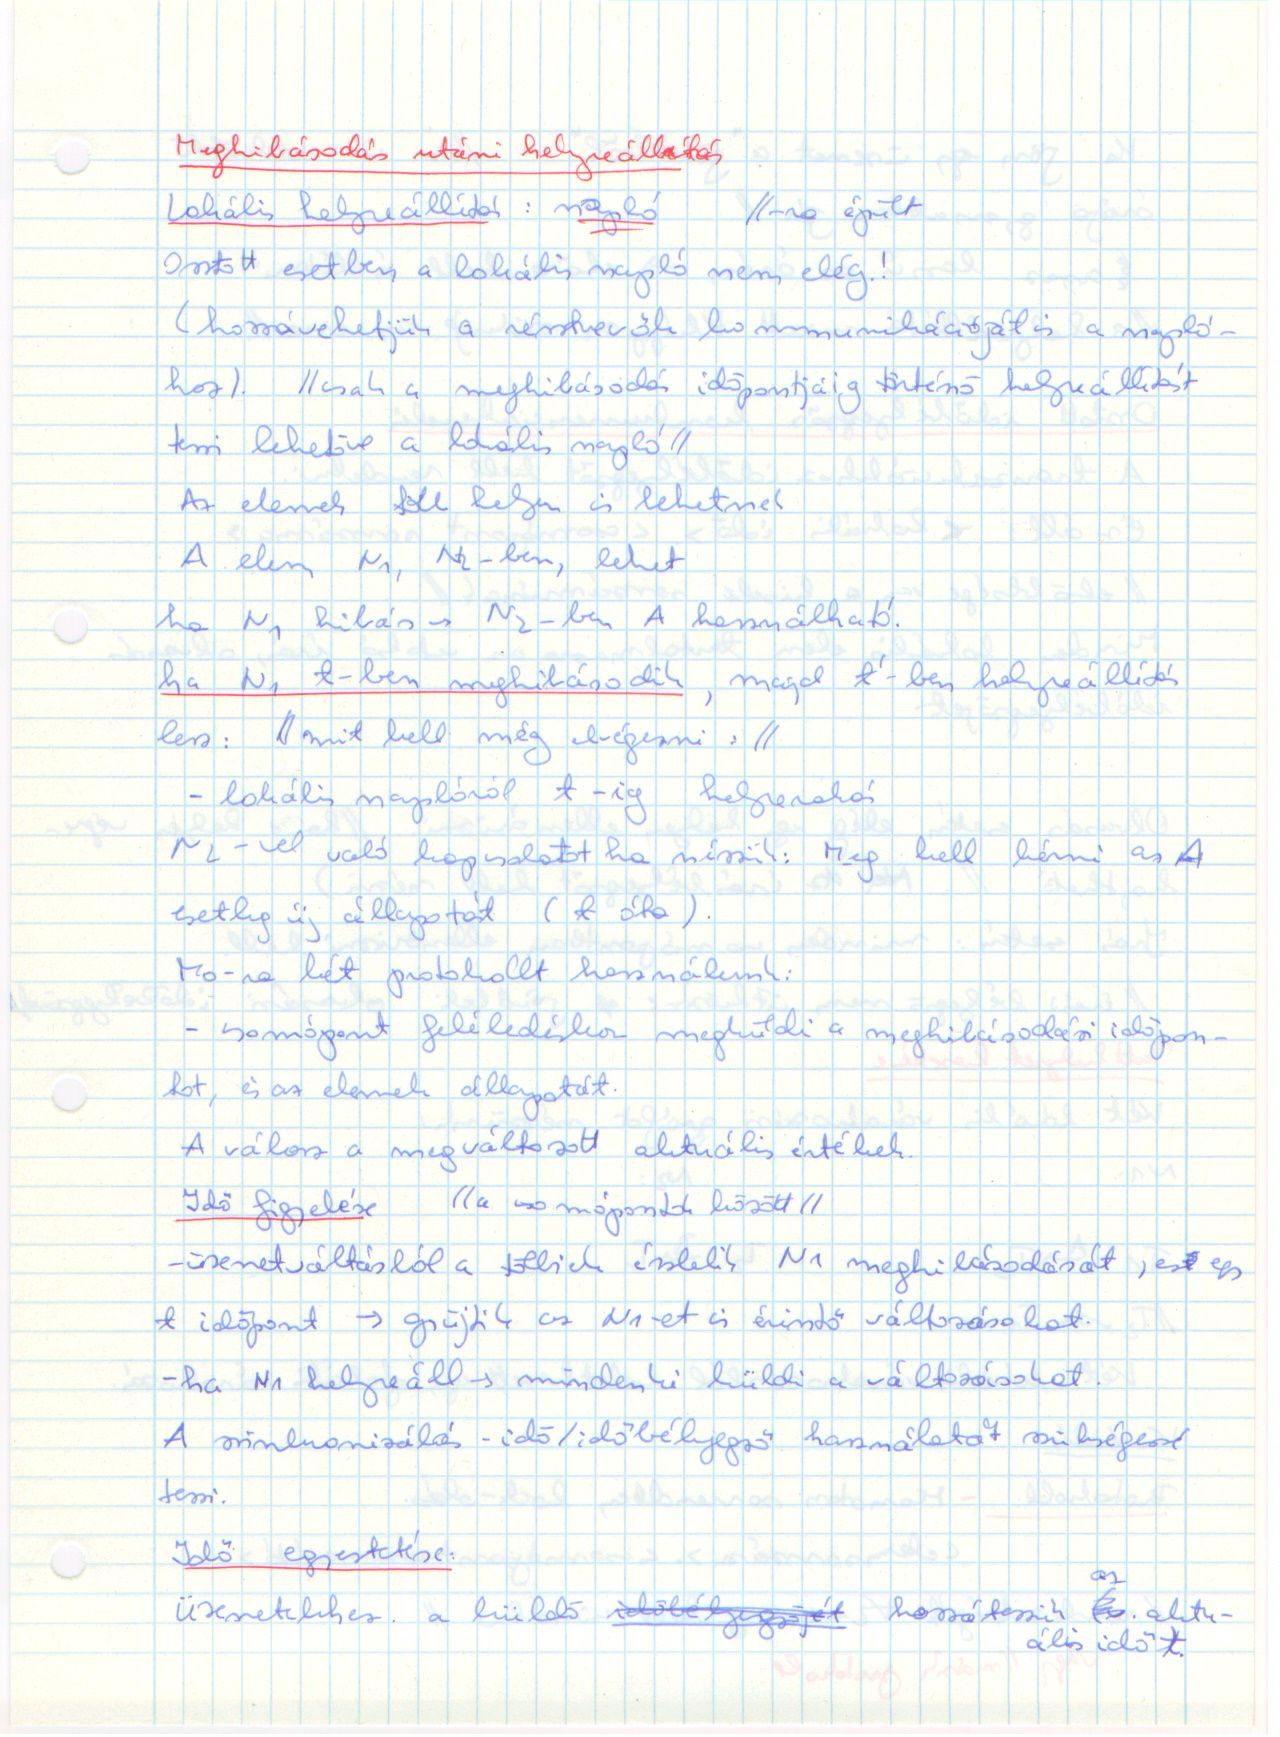 Meghibásodás utáni helyreállítás
Lokális helyreállítás: napló //-ra épült
Osztott esetben a lokális napló nem elég.!
(hozzávehetjük a résztvevők kommunikációját is a napló-
hoz). //csak a meghibásodás időpontjáig történő helyreállítást
teszi lehetővé a lokális napló//
Az elemek több helyen is lehetnek
A elem N1, N2-ben, lehet
ha N1 hibás → N2-ben A használható.
ha N1 t-ben meghibásodik, majd t'-ben helyreállítás
lesz: //mit kell még elvégezni: //
- lokális naplóról t-ig helyrerakás
N2-vel való kapcsolatot ha nézzük: Meg kell kérni az A
esetleg új állapotát (t óta).
Mo-ra két protokollt használunk:
- csomópont feléledéskor megküldi a meghibásodási időpon-
tot, és az elemek állapotát.
A válasz a megváltozott aktuális értékek.
Idő figyelése //a csomópontok között//
- üzenetváltásból a többiek észlelik N1 meghibásodását, ez egy
t időpont → gyűjtik az N1-et is érintő változásokat.
- ha N1 helyreáll → mindenki küldi a változásokat.
A szinkronizálás - idő/időbélyegző használatát szükségessé
teszi.
Idő egyeztetése:
Üzenetekhez. a küldő időbélyegzőjét hozzáteszük az aktu-
ális időt.